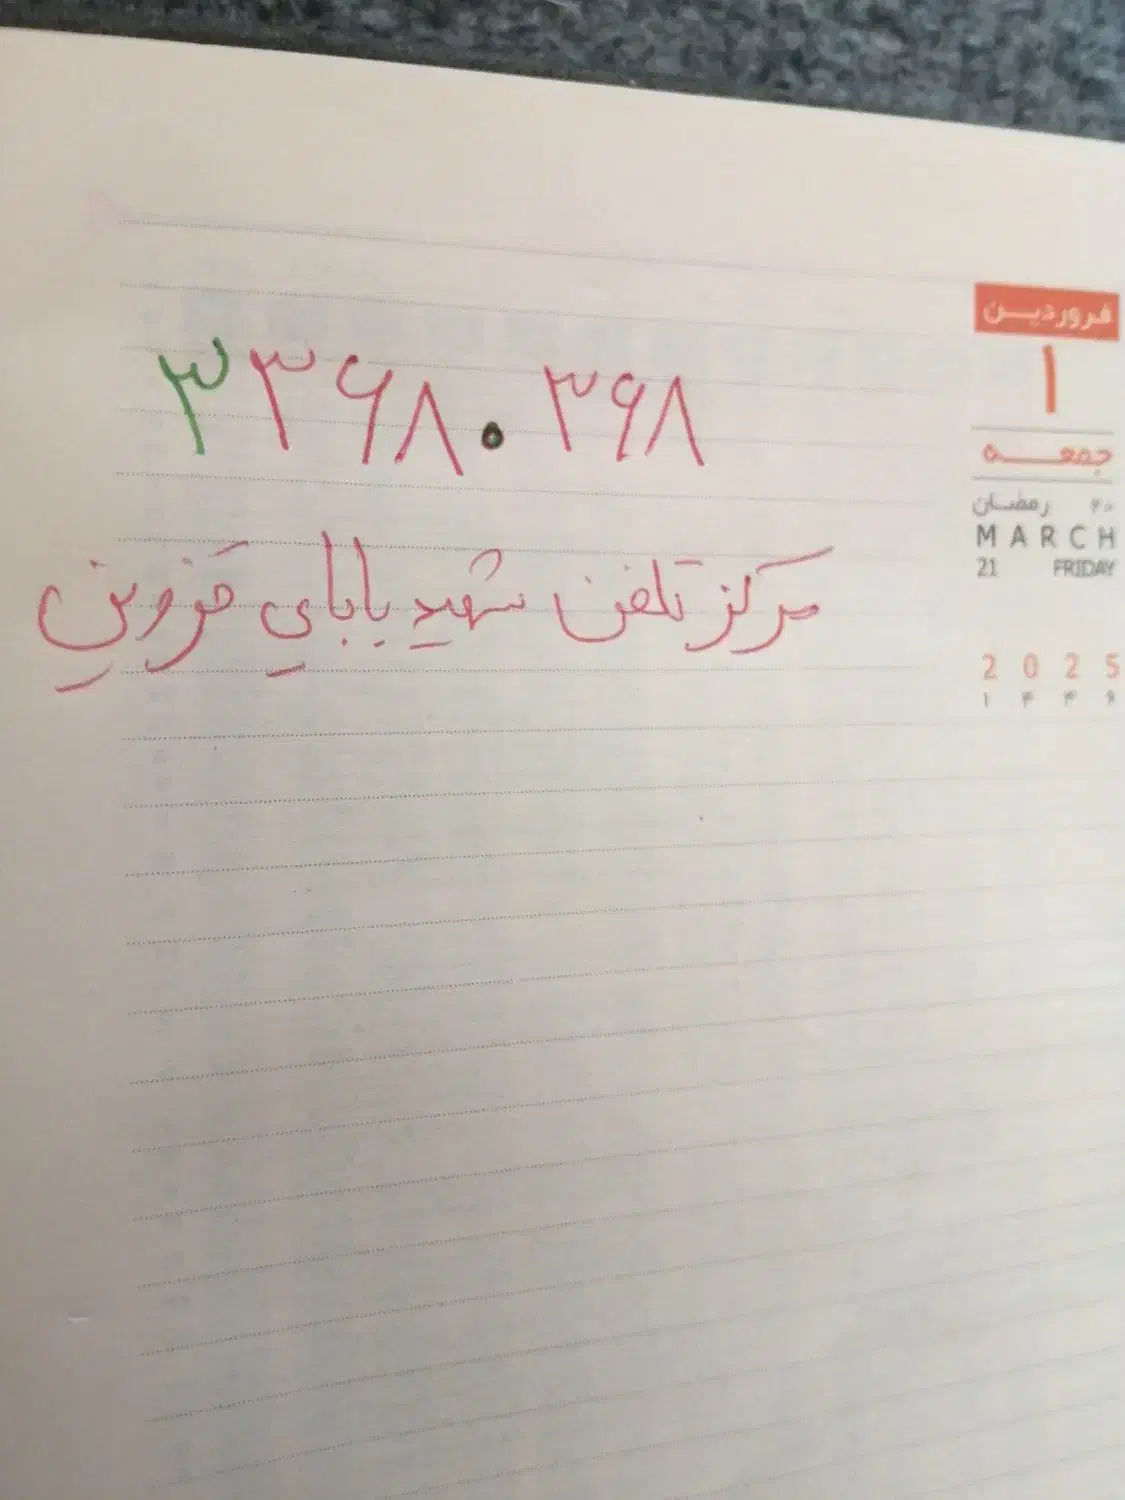 ۳۳۶۸۰۳۶۸
مرکز تلفن شهید بابایی قزوین
فروردین
۱
جمعه
۲۰ رمضان
MARCH
21 FRIDAY
2025
۱۴۴۶